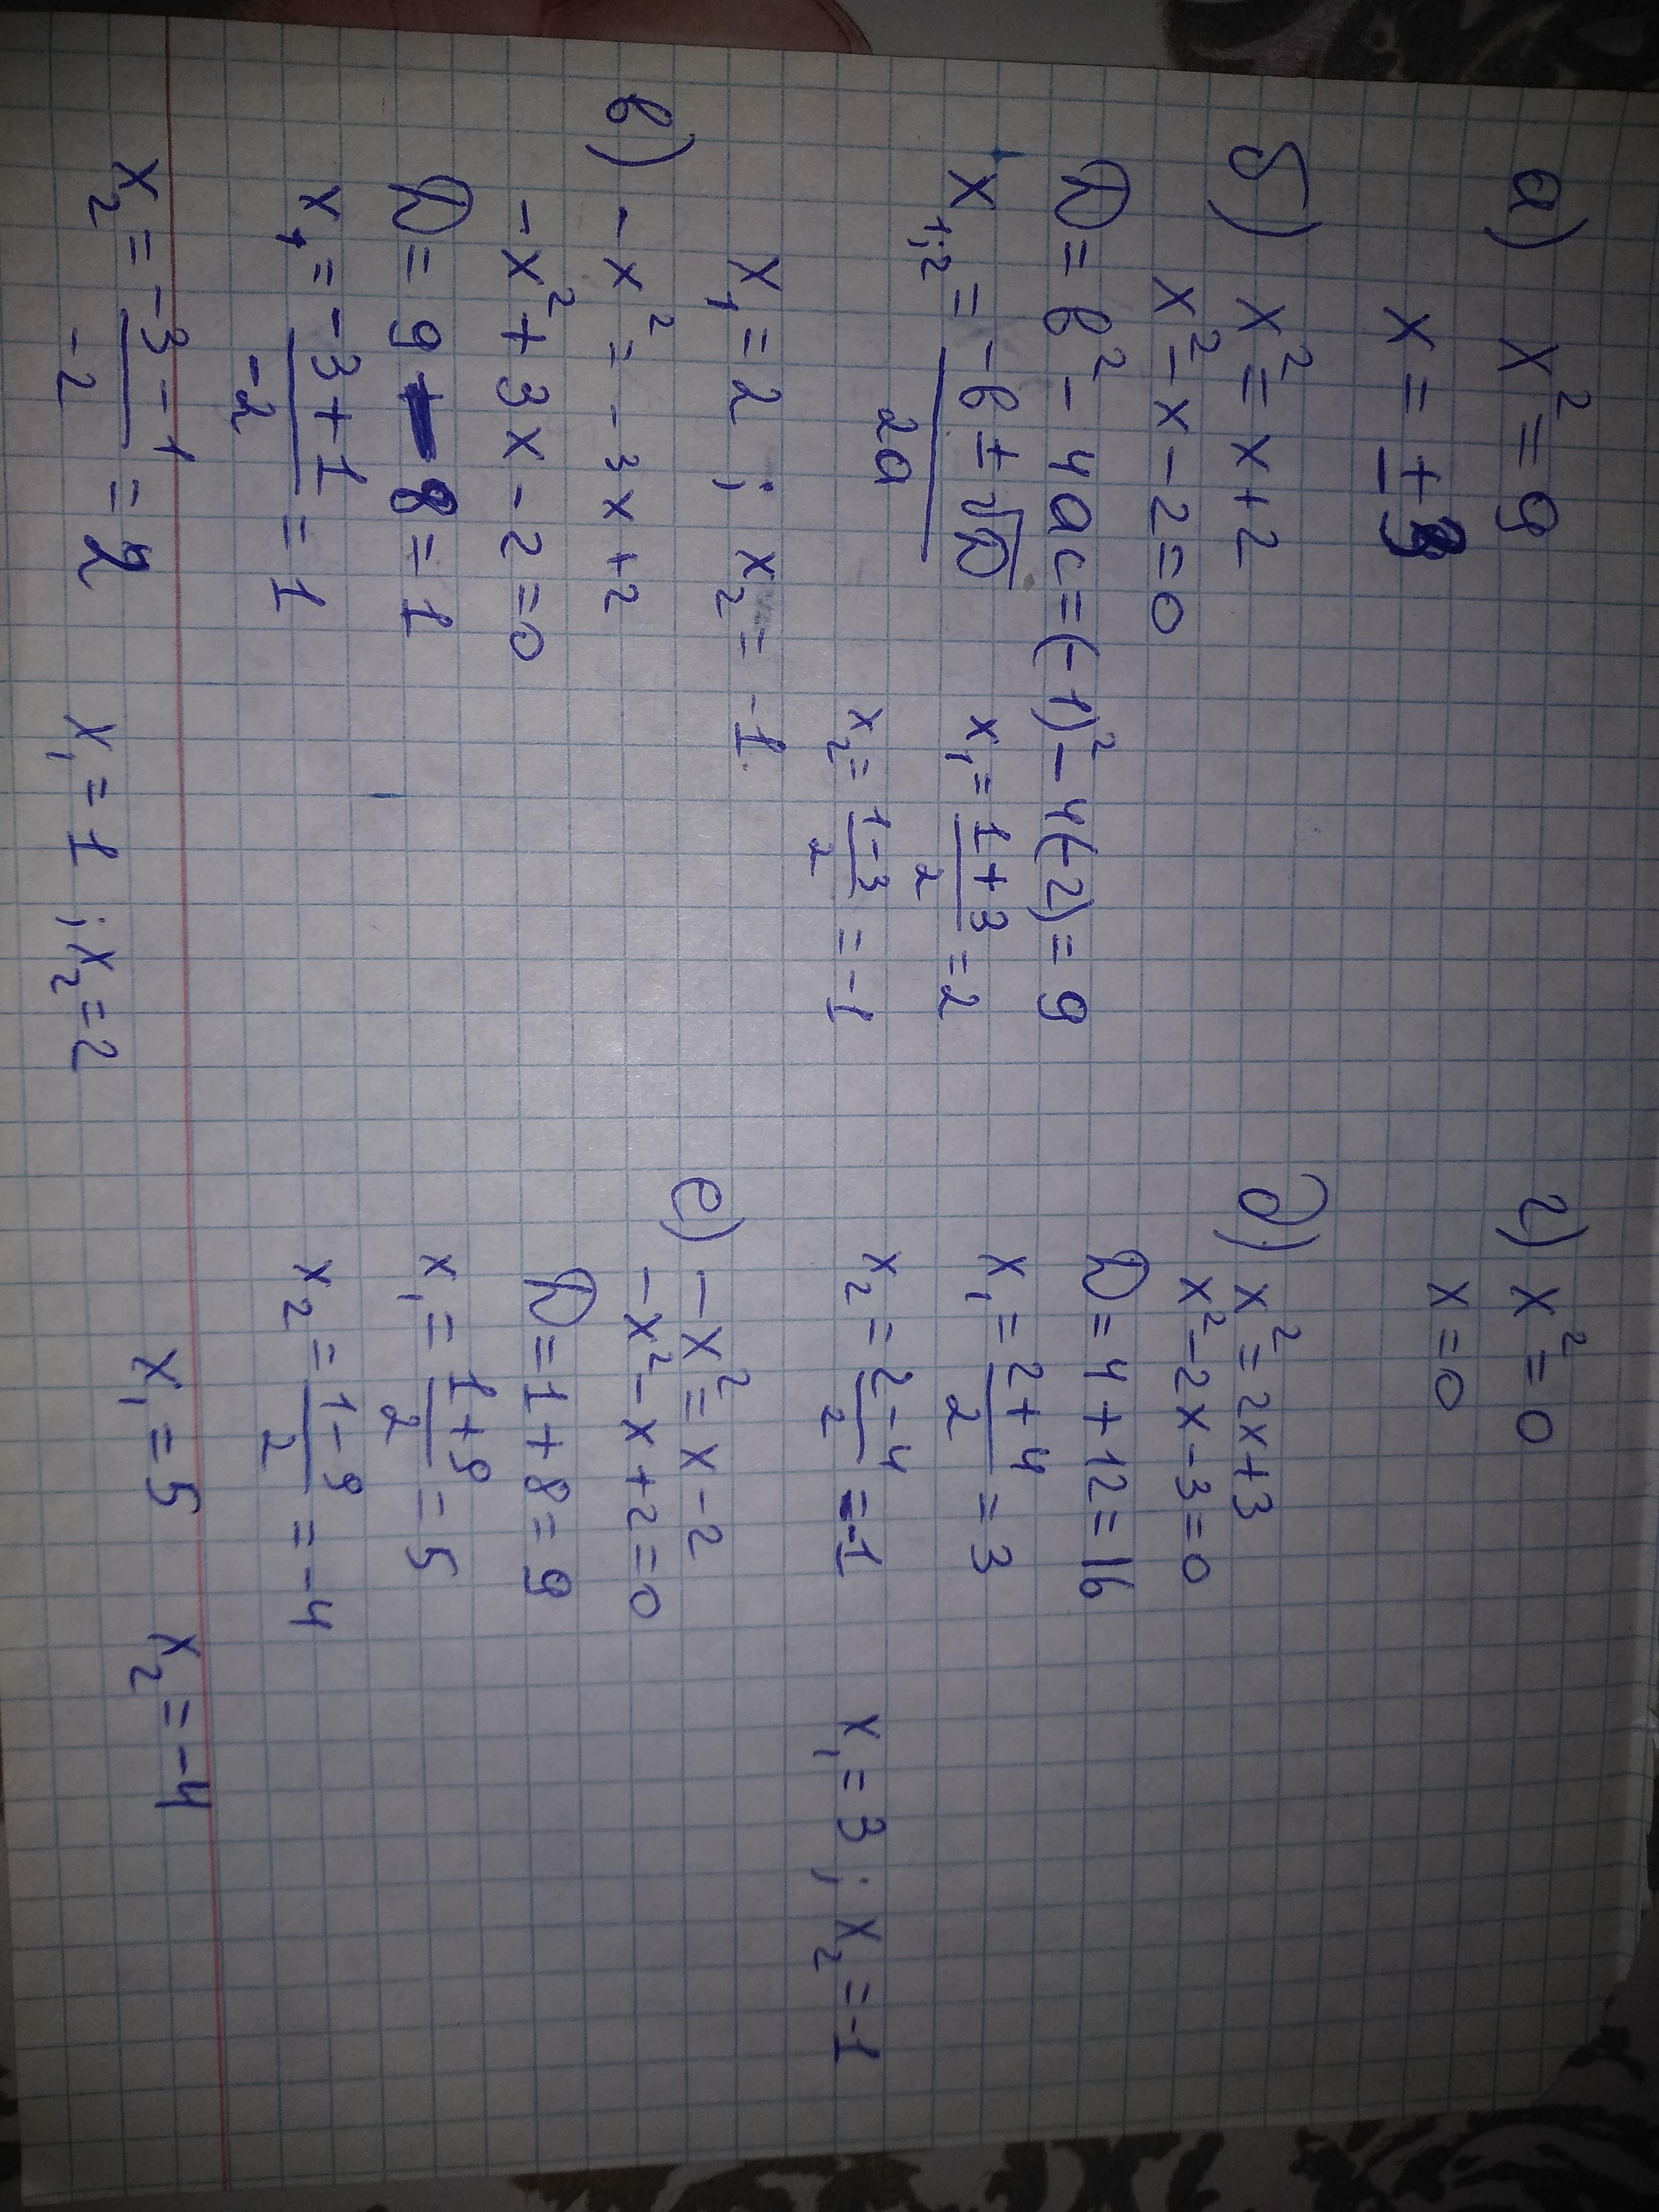 а) x² = 9
x = ±3
б) x² = x + 2
x² - x - 2 = 0
D = b² - 4ac = (-1)² - 4(-2) = 9
x₁;₂ = (-b ± √D)/2a
x₁ = (1 + 3)/2 = 2
x₂ = (1 - 3)/2 = -1
x₁ = 2 ; x₂ = -1
в) - x² = -3x + 2
- x² + 3x - 2 = 0
D = 9 - 8 = 1
x₁ = (-3 + 1)/-2 = 1
x₂ = (-3 - 1)/-2 = 2
x₁ = 1 ; x₂ = 2
г) x² = 0
x = 0
д) x² = 2x + 3
x² - 2x - 3 = 0
D = 4 + 12 = 16
x₁ = (2 + 4)/2 = 3
x₂ = (2 - 4)/2 = -1
x₁ = 3 ; x₂ = -1
е) - x² = x - 2
- x² - x + 2 = 0
D = 1 + 8 = 9
x₁ = (1 + 9)/2 = 5
x₂ = (1 - 9)/2 = -4
x₁ = 5 x₂ = -4